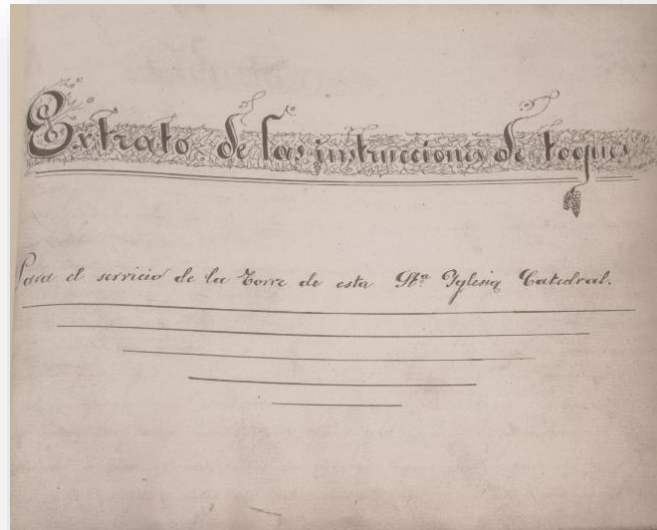 Extrato de las instrucciones de toques
Para el servicio de la Torre de esta Sta. Yglesia Catedral.